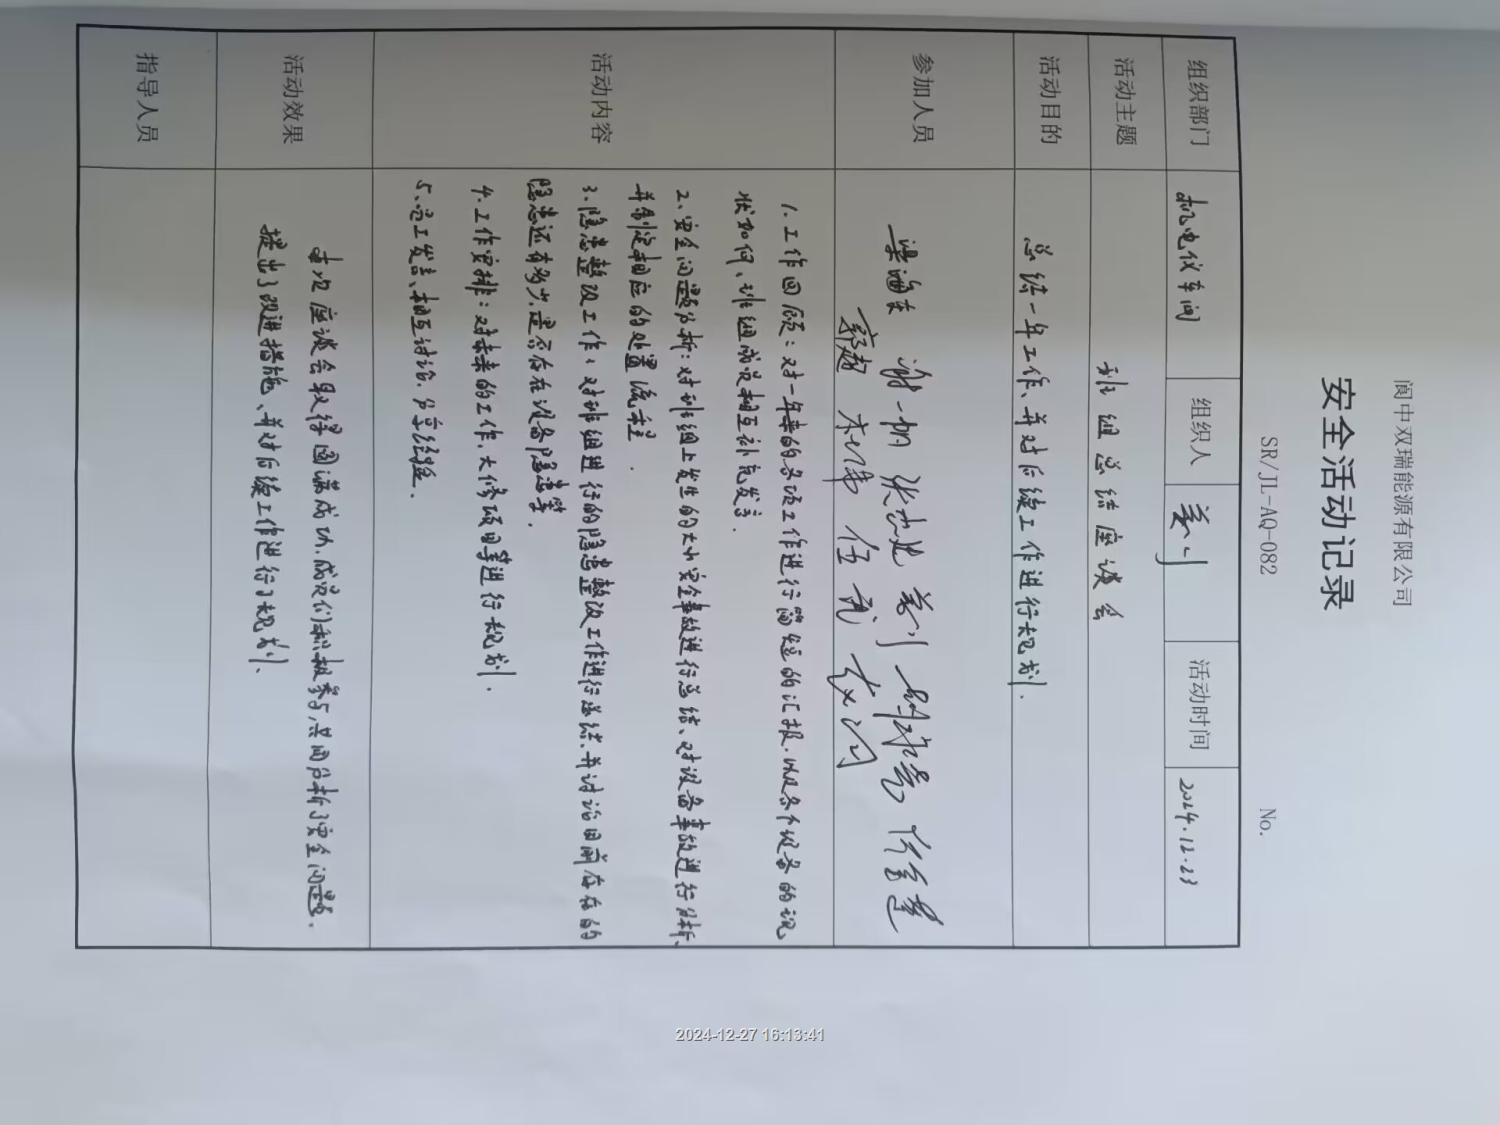 阆中双瑞能源有限公司
安全活动记录
SR/JL-AQ-082
No.
组织部门 机电仪车间 组织人 活动时间 2024.12.23
活动主题 班组总结座谈会
活动目的 总结一年工作、并对后续工作进行规划.
参加人员
伍
活动内容
1.工作回顾:对一年来的各项工作进行简短的汇报.以及各个设备的现
状如何、班组成员相互补充发言.
2、安全问题分析:对班组上发生的大小安全事故进行总结、对设备事故进行分析、
并制定相应的处置流程.
3.隐患整改工作:对班组进行的隐患整改工作进行总结.并讨论目前存在的
隐患还有多少,是否存在设备隐患等.
4.工作安排:对未来的工作.大修项目等进行规划.
5、员工发言、相互讨论.分享经验.
活动效果
本次座谈会取得圆满成功.成员们积极参与,共同分析了安全问题.
提出了改进措施、并对后续工作进行了规划.
指导人员
2024-12-27 16:13:41